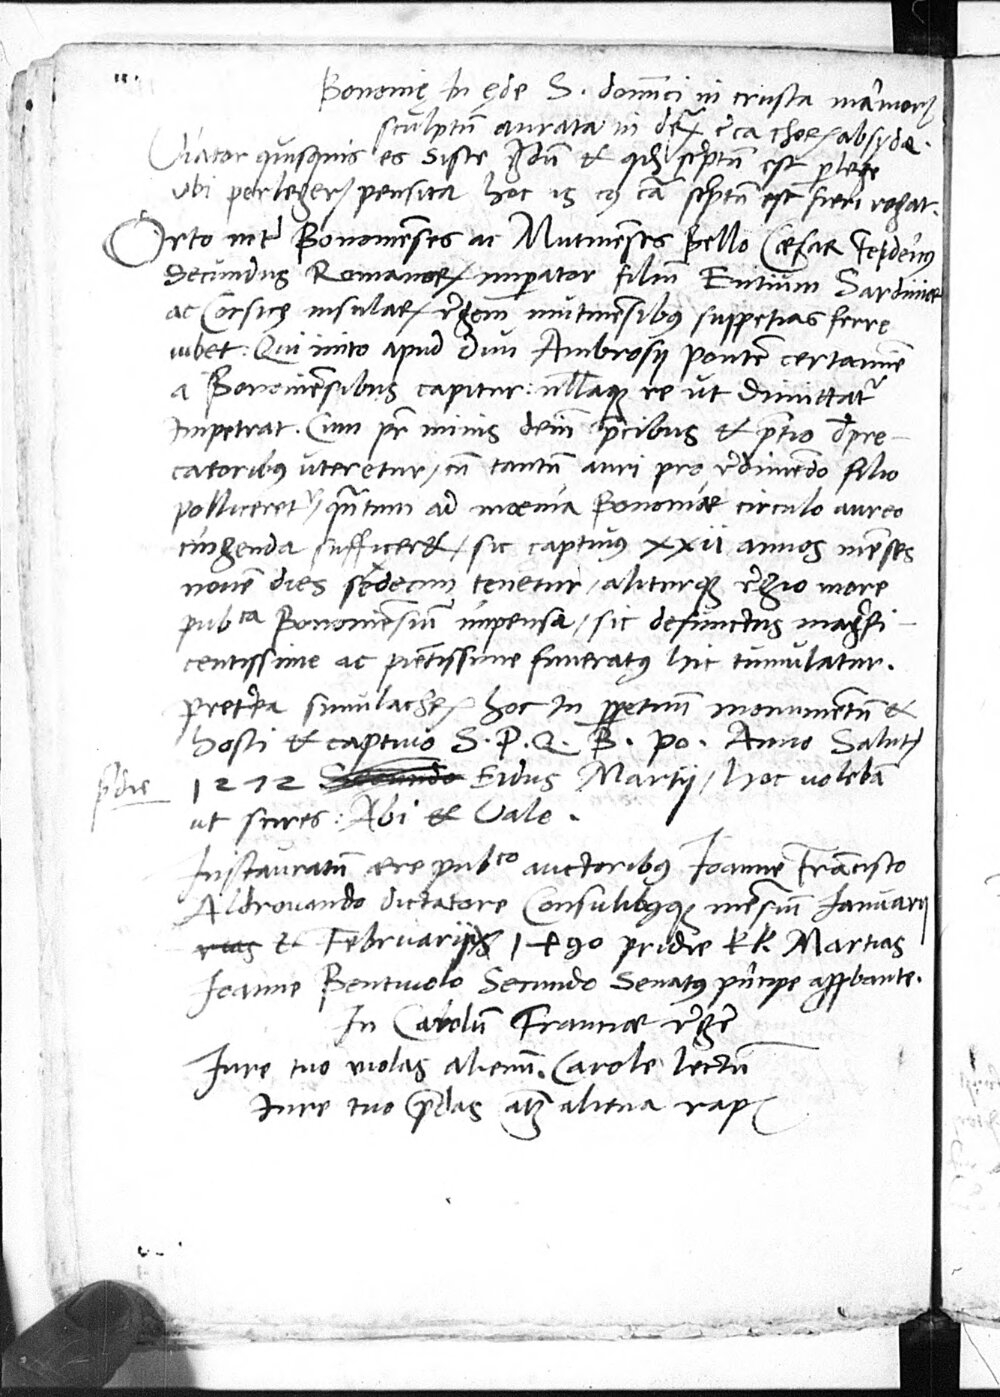 Bononię In ęde S. dom̄ici in crusta mārmor
sculptū aurata in dex̄ c̄ca chor absydæ.
Viator quisquis es siste g̃dū & qđ sc̃ptū est p̱lege
Vbi perlegeris pensita hoc is cuius cā sc̃ptū est fieri rogat.
Orto int̃ Bononiēses ac Mutinēses Bello Cæsar Fedeŕicus
Secundus Romanor imp̱ator filiū Entium Sardiniæ
ac Corsicę insular r̃gem mutinēsibus suppetias ferre
iubet: Qui inito apud diui Ambrosij pontē certamīe
a Bononiēsibus capitur: nullaque re ut dimittat̃
Impetrat. Cum pr̃ minis dein p̃cibus & p̃tio d̃pre-
catoribus uteretur / cū tantū auri pro r̃dimēdo filio
polliceret̃ / quātum ad mœnia Bononiæ circulo aureo
cingenda sufficer& / sic captiuus xxii annos mēses
nouē dies sédecim tenetur / aliturque r̃gio more
pub^ca Bononiēsiū impensa / sic defunctus mag̃fi-
centissime ac piētissime funeratus hic tumulatur.
Pret̃ea simulachr hoc In pp̱etuū monumētū &
hosti & captiuo S. P. Q. B. Po. Anno Salut̃
p̃die 1272 Secundo Eidus Martij / hoc uolebā
ut scires: Abi & Vale.
Instauratū ære pub^co auctoribus Ioanne Frācisco
Aldrouando dictatore Consulibusque mēsiū Ianuarij
rias & Februarij 1490 pridie kl. Martias
Ioanne Bentiuolo Secundo Senatus pr̃ncipe app̱bante.
In Carolū Franciæ r̃gẽ
Iure tuo uiolas alienū. Carole lectū
Iure tuo p̃das altera rap